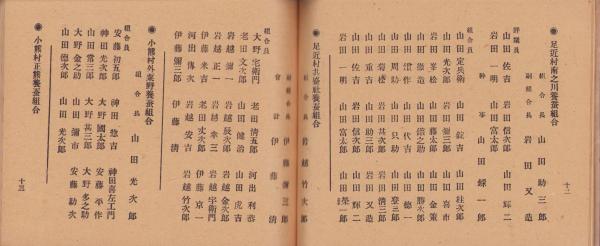 ◉足近村南之川養蚕組合
組合長 山田助三郎
副組合長 岩田又造
幹事 山田𨦺一郎
評議員
山田佐吉 岩田信次郎 山田輝二
岩田一明 山田富太郎
組合員
山田定兵衛 山田錠吉 山田桂次郎
山田光次郎 岩田彌三郎 山田喜市
岩田峯松 山田藤太郎 山田金策
山田崇造 山田舘之助 山田勝次郎
山田増作 山田代吉 山田德一
山田周助 山田只助 山田登三郎
山田菊松 岩田甚次郎 岩田清三郎
山田重吉 山田助三郎 岩田又造
山田佐吉 岩田信次郎 山田輝二
岩田一明 山田富太郎 山田榮一郎
十二
◉足近村共盛社養蚕組合
組合長 岩越竹次郎
副組合長 伊藤彌三郎
會計 伊藤清
組合員
大野宅衛門 老田清五郎 河出利恭
老田文次郎 山田健治 山田虎吉
岩越彌一 岩越辰次郎 岩越金次郎
岩越傳一 岩越幸三 岩越宇衛門
伊藤米吉 老田丈次郎 伊藤京一
河出傳次 岩越安吉 岩越竹次郎
伊藤彌三郎 伊藤清
◉小熊村外粟野養蚕組合
組合長 山田光次郎
組合員
安藤初五郎 神田惣吉 神田喜左エ門
神田光次郎 大野國太郎 安藤平作
山田常三郎 大野甚三郎 大野多之助
大野金之助 山田彌市 安藤勘次
山田德次郎 山田光次郎
◉小熊村正熊養蚕組合
十三